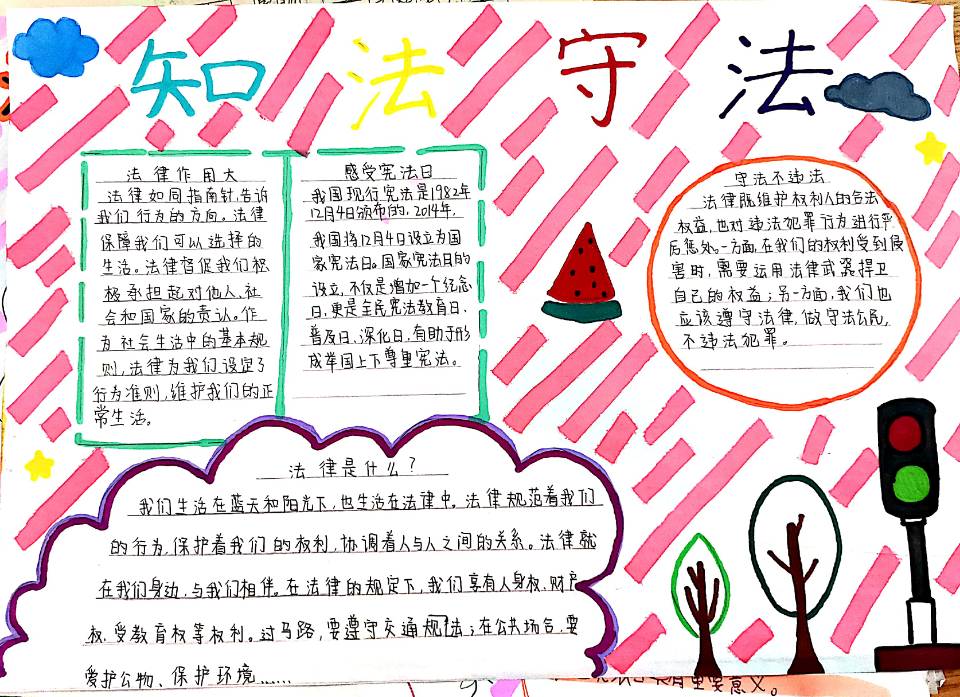 知法守法
法律作用大
法律如同指南针,告诉
我们行为的方向。法律
保障我们可以选择的
生活。法律督促我们积
极承担起对他人、社
会和国家的责认。作
为社会生活中的基本规
则,法律为我们设定了
行为准则,维护我们的正
常生活。
感受宪法日
我国现行宪法是1982年
12月4日颁布的,2014年,
我国将12月4日设立为国
家宪法日。国家宪法日的
设立,不仅是增加一个纪念
日,更是全民宪法教育日、
普及日、深化日,有助于形
成举国上下尊重宪法。
守法不违法
法律既维护权利人的合法
权益,也对违法犯罪行为进行严
厉惩处。一方面,在我们的权利受到侵
害时,需要运用法律武器捍卫
自己的权益;另一方面,我们也
应该遵守法律,做守法公民,
不违法犯罪。
法律是什么?
我们生活在蓝天和阳光下,也生活在法律中。法律规范着我们
的行为,保护着我们的权利,协调着人与人之间的关系。法律就
在我们身边,与我们相伴。在法律的规定下,我们享有人身权、财产
权、受教育权等权利。过马路,要遵守交通规法;在公共场合,要
爱护公物、保护环境……
重要意义。